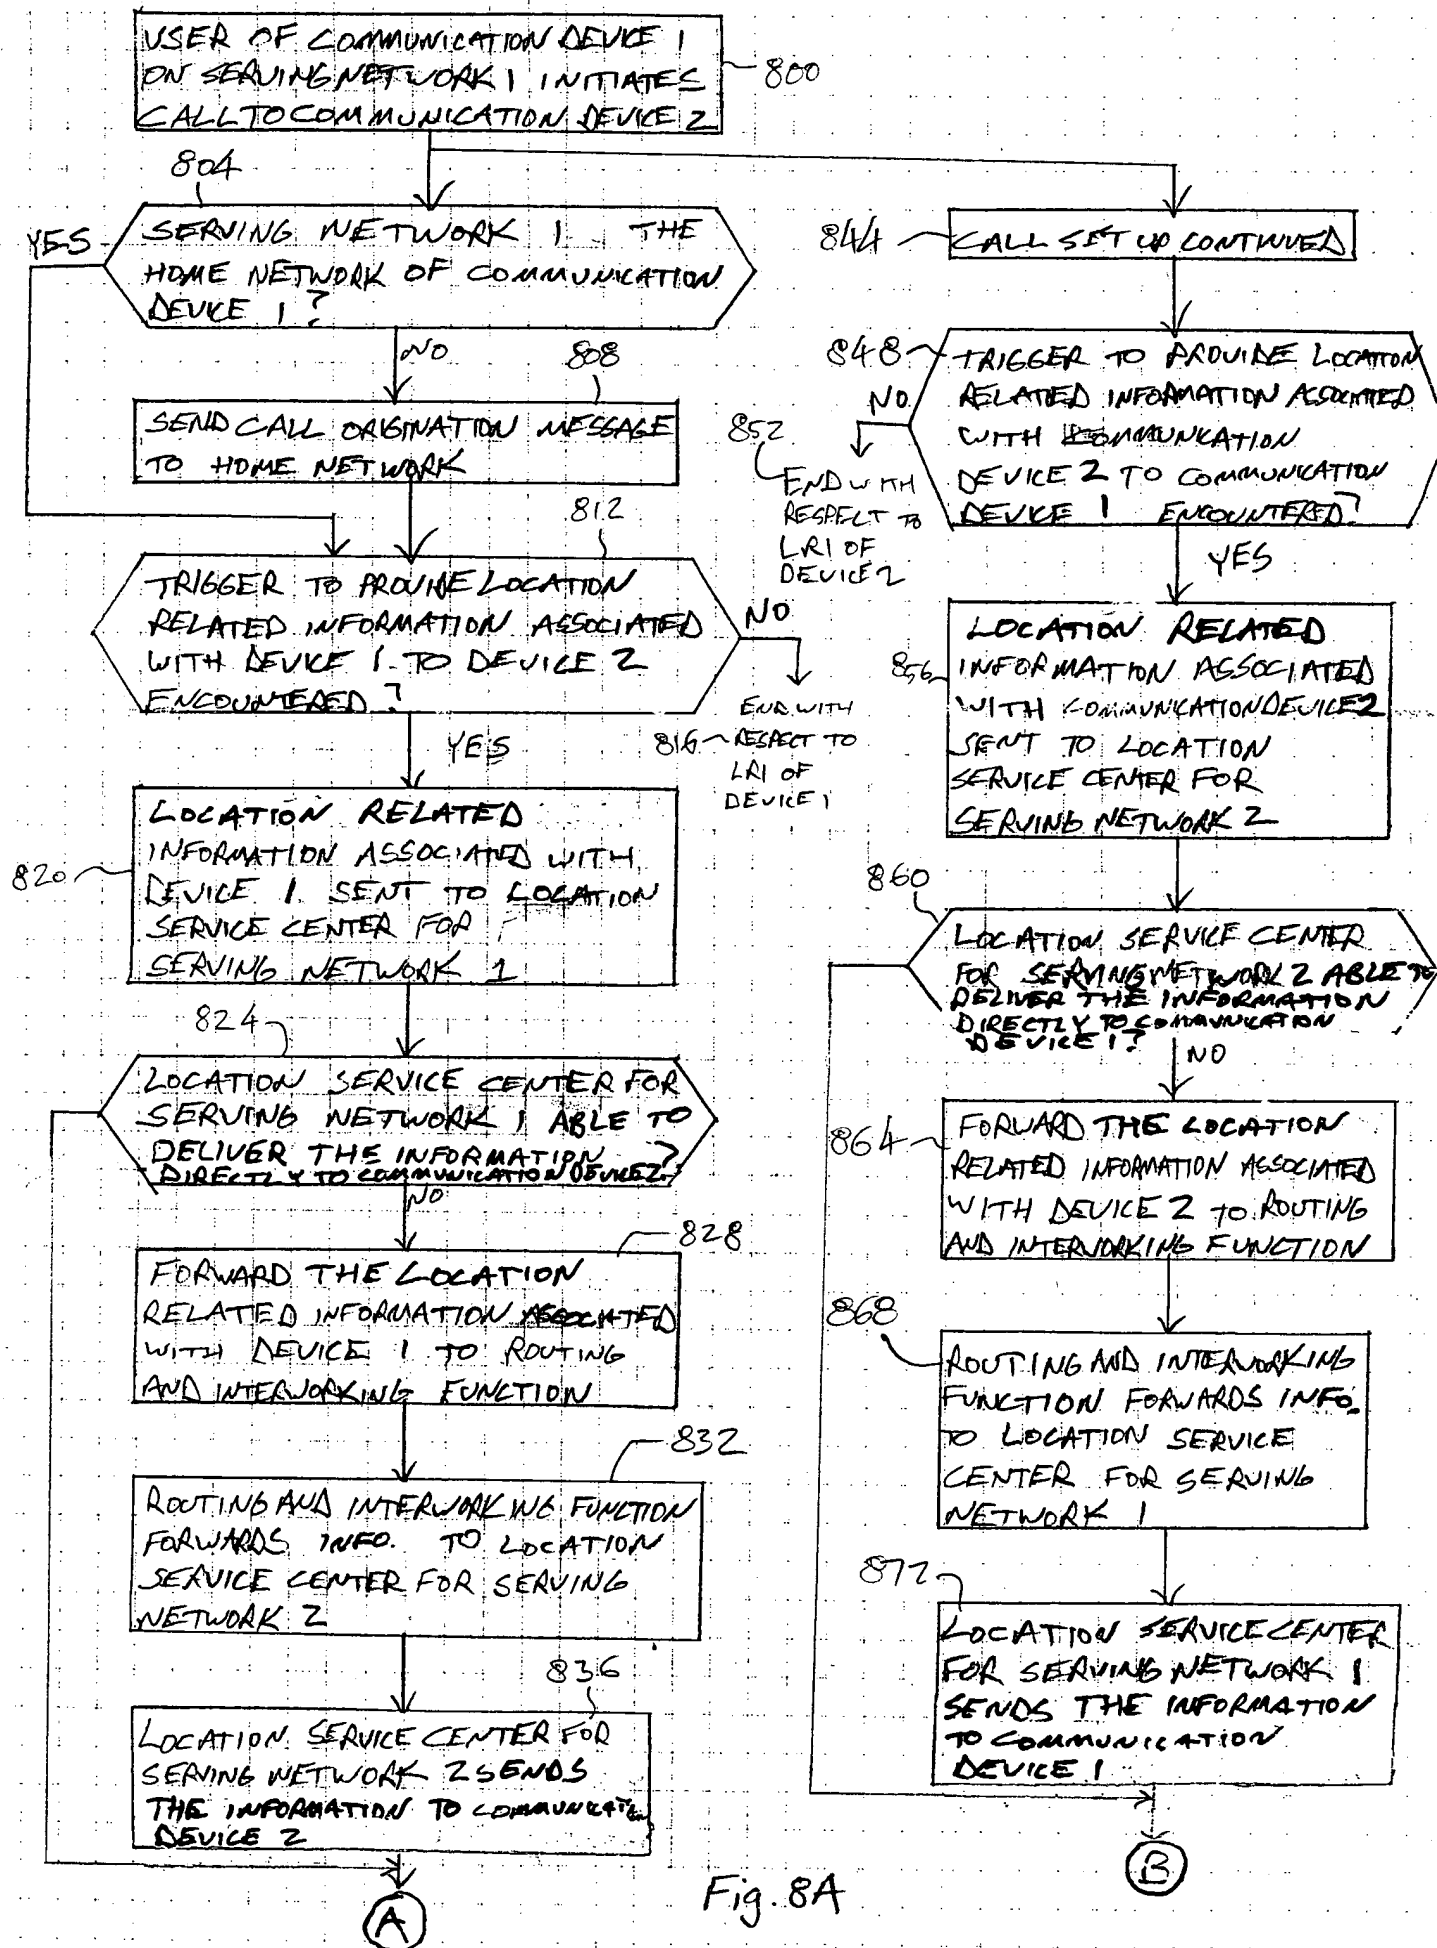 USER OF COMMUNICATION DEVICE 1
ON SERVING NETWORK 1 INITIATES
CALL TO COMMUNICATION DEVICE 2
800
804
YES
SERVING NETWORK 1 THE
HOME NETWORK OF COMMUNICATION
DEVICE 1?
NO
808
SEND CALL ORIGINATION MESSAGE
TO HOME NETWORK
812
TRIGGER TO PROVIDE LOCATION
RELATED INFORMATION ASSOCIATED
WITH DEVICE 1 TO DEVICE 2
ENCOUNTERED?
NO
END WITH
816 RESPECT TO
LRI OF
DEVICE 1
YES
820
LOCATION RELATED
INFORMATION ASSOCIATED WITH
DEVICE 1 SENT TO LOCATION
SERVICE CENTER FOR
SERVING NETWORK 1
824
LOCATION SERVICE CENTER FOR
SERVING NETWORK 1 ABLE TO
DELIVER THE INFORMATION
DIRECTLY TO COMMUNICATION DEVICE 2?
NO
828
FORWARD THE LOCATION
RELATED INFORMATION ASSOCIATED
WITH DEVICE 1 TO ROUTING
AND INTERWORKING FUNCTION
832
ROUTING AND INTERWORKING FUNCTION
FORWARDS INFO. TO LOCATION
SERVICE CENTER FOR SERVING
NETWORK 2
836
LOCATION SERVICE CENTER FOR
SERVING NETWORK 2 SENDS
THE INFORMATION TO COMMUNICATION
DEVICE 2
A
844
CALL SET UP CONTINUED
848
TRIGGER TO PROVIDE LOCATION
RELATED INFORMATION ASSOCIATED
WITH COMMUNICATION
DEVICE 2 TO COMMUNICATION
DEVICE 1 ENCOUNTERED?
NO
852
END WITH
RESPECT TO
LRI OF
DEVICE 2
YES
856
LOCATION RELATED
INFORMATION ASSOCIATED
WITH COMMUNICATION DEVICE 2
SENT TO LOCATION
SERVICE CENTER FOR
SERVING NETWORK 2
860
LOCATION SERVICE CENTER
FOR SERVING NETWORK 2 ABLE TO
DELIVER THE INFORMATION
DIRECTLY TO COMMUNICATION
DEVICE 1?
NO
864
FORWARD THE LOCATION
RELATED INFORMATION ASSOCIATED
WITH DEVICE 2 TO ROUTING
AND INTERWORKING FUNCTION
868
ROUTING AND INTERWORKING
FUNCTION FORWARDS INFO.
TO LOCATION SERVICE
CENTER FOR SERVING
NETWORK 1
872
LOCATION SERVICE CENTER
FOR SERVING NETWORK 1
SENDS THE INFORMATION
TO COMMUNICATION
DEVICE 1
B
Fig. 8A